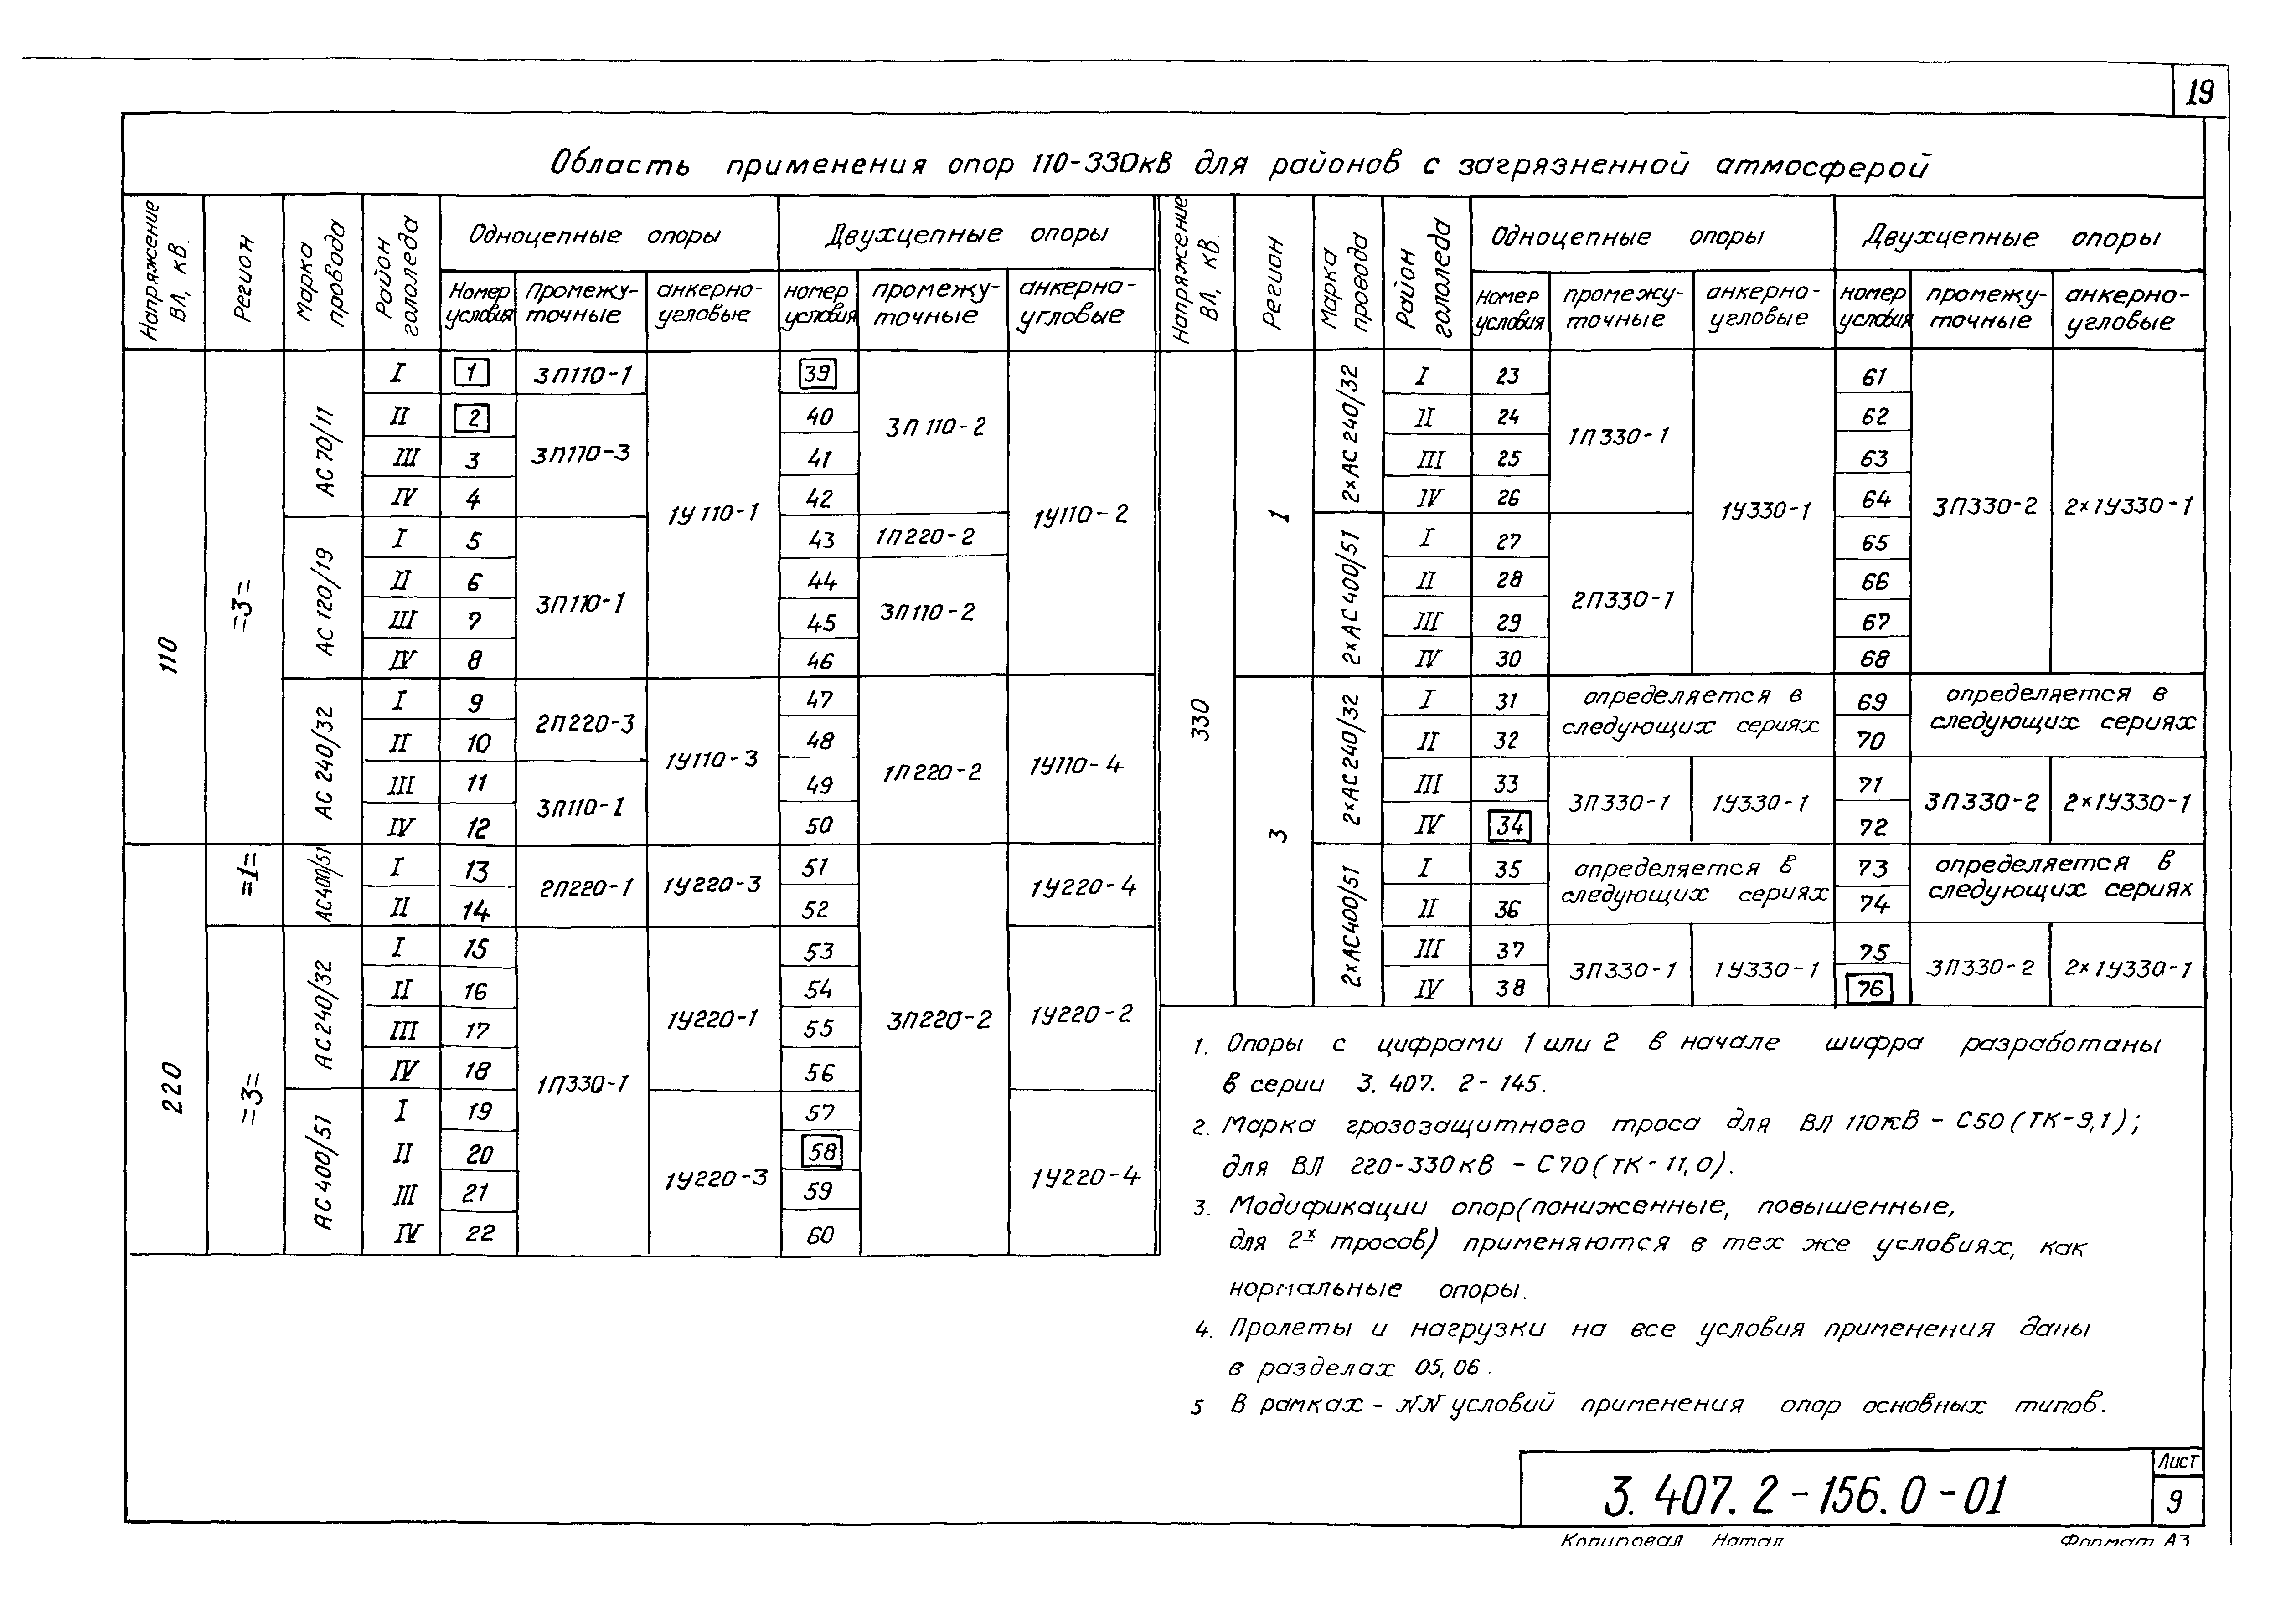 19
Область применения опор 110-330кВ для районов с загрязненной атмосферой
Напряжение ВЛ, кВ.
Регион
Марка провода
Район гололеда
Одноцепные опоры
Двухцепные опоры
Номер условия
Промежу-
точные
анкерно-
угловые
номер условия
промежу-
точные
анкерно-
угловые
110
=3=
АС 70/11
I 1 3П110-1 39
II 2 40
III 3 41
IV 4 42
3П110-3
3П110-2
1У110-1
1У110-2
АС 120/19
I 5 43 1П220-2
II 6 44
III 7 45
IV 8 46
3П110-1
3П110-2
АС 240/32
I 9 47
II 10 48
2П220-3
III 11 49
IV 12 50
3П110-1
1У110-3
1П220-2
1У110-4
220
=1=
АС400/51
I 13 51
II 14 52
2П220-1
1У220-3
1У220-4
=3=
АС240/32
I 15 53
II 16 54
III 17 55
IV 18 56
1У220-1
3П220-2
1У220-2
1П330-1
АС 400/51
I 19 57
II 20 58
III 21 59
IV 22 60
1У220-3
1У220-4
Напряжение ВЛ, кВ.
Регион
Марка провода
Район гололеда
Одноцепные опоры
Двухцепные опоры
номер условия
промежу-
точные
анкерно-
угловые
номер условия
промежу-
точные
анкерно-
угловые
330
1
2×АС 240/32
I 23 61
II 24 62
III 25 63
IV 26 64
1П330-1
1У330-1
3П330-2
2×1У330-1
2×АС400/51
I 27 65
II 28 66
III 29 67
IV 30 68
2П330-1
3
2×АС240/32
I 31 69
II 32 70
определяется в
следующих сериях
определяется в
следующих сериях
III 33 71
IV 34 72
3П330-1 1У330-1 3П330-2 2×1У330-1
2×АС400/51
I 35 73
II 36 74
определяется в
следующих сериях
определяется в
следующих сериях
III 37 75
IV 38 76
3П330-1 1У330-1 3П330-2 2×1У330-1
1. Опоры с цифрами 1 или 2 в начале шифра разработаны
в серии 3. 407. 2-145.
2. Марка грозозащитного троса для ВЛ 110кВ - С50 (ТК-9,1);
для ВЛ 220-330кВ - С70 (ТК-11,0).
3. Модификации опор(пониженные, повышенные,
для 2х тросов) применяются в тех же условиях, как
нормальные опоры.
4. Пролеты и нагрузки на все условия применения даны
в разделах 05, 06.
5 В рамках - NN условий применения опор основных типов.
3. 407. 2-156. 0-01
Лист
9
Копировал Натал
Формат А3